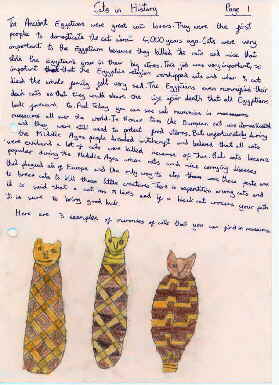 Cats in History Page 1
The Ancient Egyptians were great cat lovers. They were the first
people to domesticate the cat about 4,000 years ago. Cats were very
important to the Egyptians because they killed the rats and mice that
stole the Egyptian's grain in their big stores. This job was very important, so
important that the Egyptian religion worshipped cats and when a cat
died the whole family felt very sad. The Egyptians even mummified their
dead cats so that they would have the life after death that all Egyptians
look forward to. And today you can see cat mummies in museums
museums all over the world. In Roman times the European cat was domesticated
and they were still used to protect food stores. But unfortunately during
the Middle Ages people believed witchcraft and believed that all cats
were and a lot of cats were killed because of that. But cats became
popular during the Middle Ages when rats and mice carrying diseases
that plagued all of Europe and the only way to stop these pests was
to breed cats to kill these little creatures. There is superstition among cats and
it is said that a cat has 9 lives and if a black cat crosses your path
it is sure to bring good luck.
Here are 3 examples of mummies of cats that you can find in museums